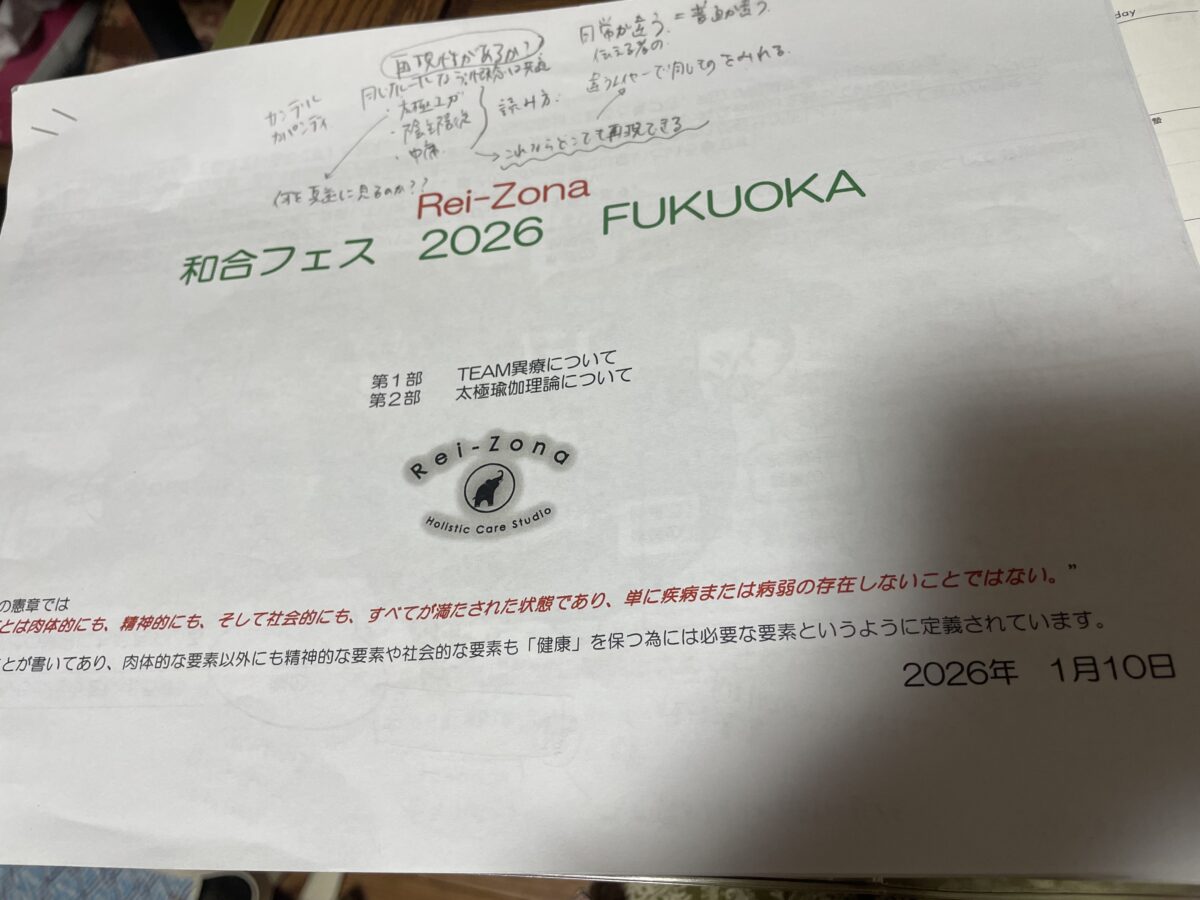 再現性があるか?
日常が違う = 普通が違う.
伝える者の.
カンデル
カパンディ
・太極
・陰主陽従
・中庸
読み方.
違うレイヤーで同じものをみれる.
これならどこでも再現できる
何を真実に見るのか??
Rei-Zona
和合フェス 2026 FUKUOKA
第1部 TEAM異療について
第2部 太極瑜伽理論について
Rei-Zona
Holistic Care Studio
の憲章では
とは肉体的にも、精神的にも、そして社会的にも、すべてが満たされた状態であり、単に疾病または病弱の存在しないことではない。”
とが書いてあり、肉体的な要素以外にも精神的な要素や社会的な要素も「健康」を保つ為には必要な要素というように定義されています。
2026年 1月10日
day